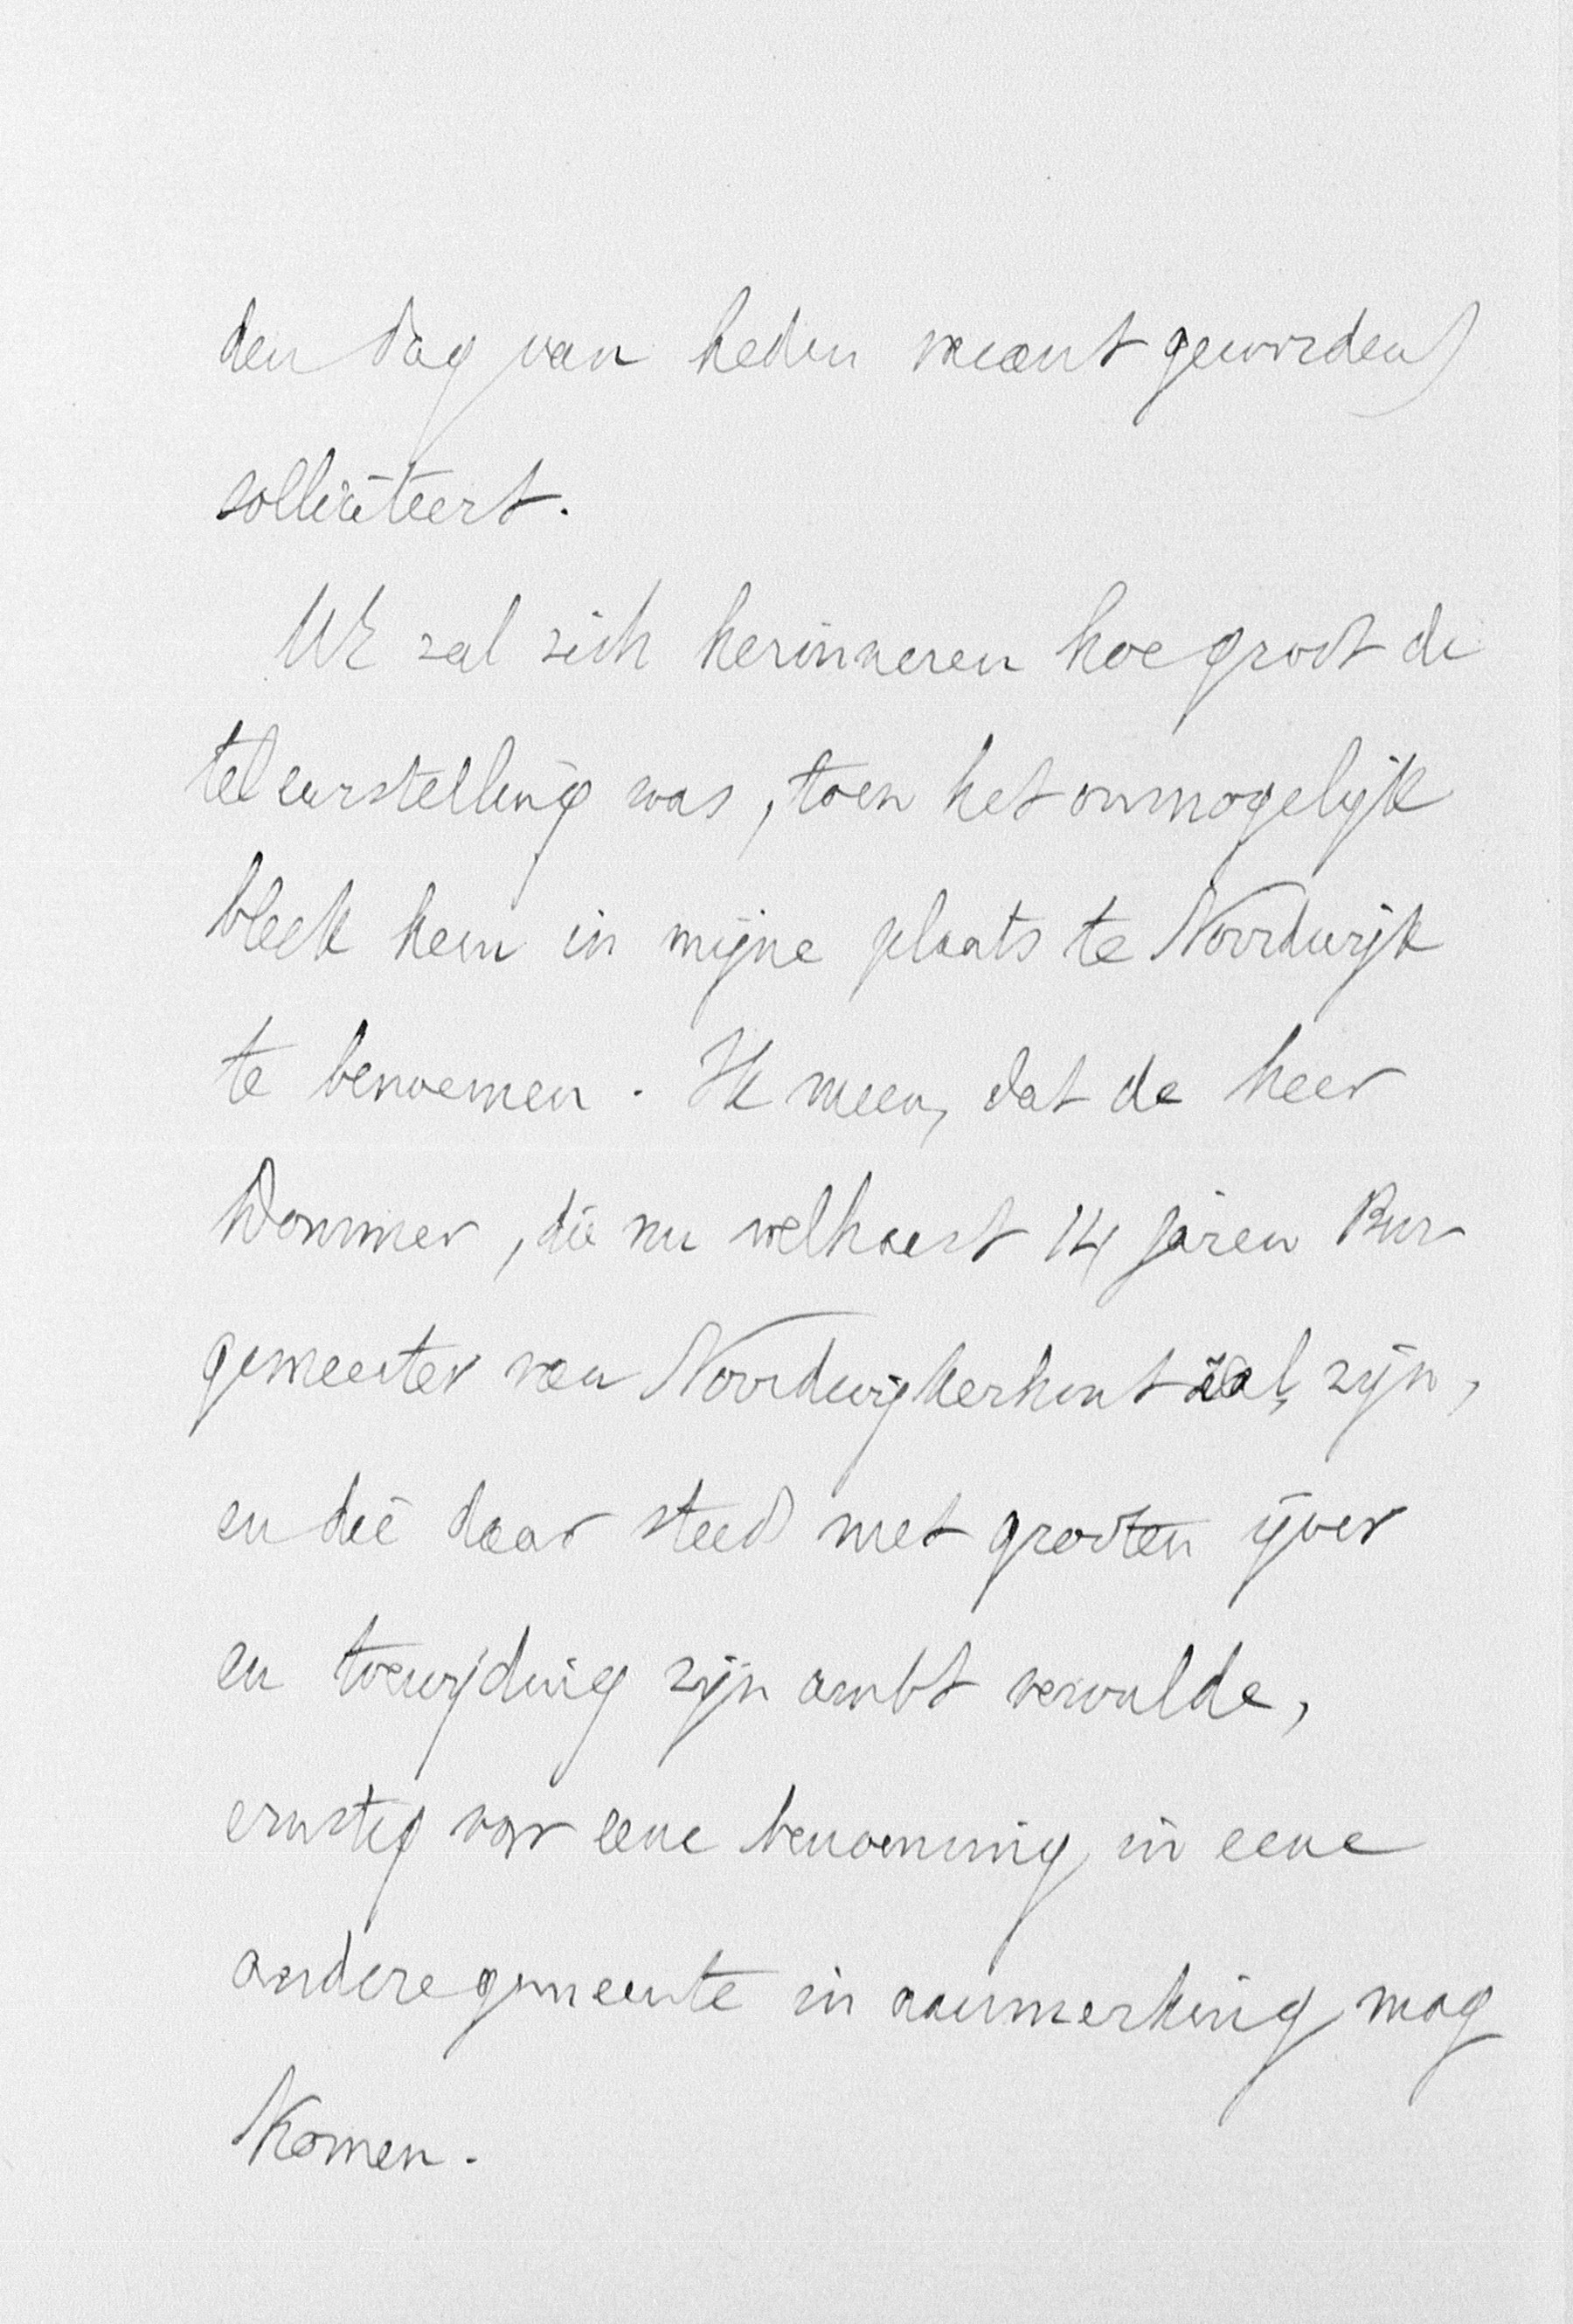 den dag van heden vacant geworden)
solliciteert.
UE zal zich herinneren hoe groot de
teleurstelling was, toen het onmogelijk
bleek hem in mijne plaats te Noordwijk
te benoemen. Ik meen, dat de heer
die nu welhaest 14 jaren Bur
gemeester van Noordwijkerhout zal zijn,
en die daar steeds met grooten ijver
en toewijding zijn ambt vervulde,
ernstig voor eene benoeming in eene
andere gemeente in aanmerking mag
komen.